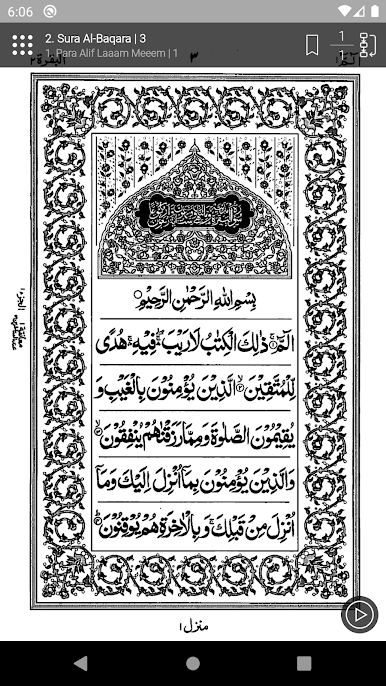 6:06
2. Sura Al-Baqara | 3
1. Para Alif Laaam Meeem | 1
1
1
البقرة٢
٣
الٓمّٓ ١
بِسْمِ اللهِ الرَّحْمٰنِ الرَّحِيْمِ
الٓمّٓ ۚ ذٰلِكَ الْكِتٰبُ لَا رَيْبَ ۛ فِيْهِ ۛ هُدًى
لِّلْمُتَّقِيْنَ ۙ الَّذِيْنَ يُؤْمِنُوْنَ بِالْغَيْبِ وَ
يُقِيْمُوْنَ الصَّلٰوةَ وَمِمَّا رَزَقْنٰهُمْ يُنْفِقُوْنَ ۙ
وَالَّذِيْنَ يُؤْمِنُوْنَ بِمَآ اُنْزِلَ اِلَيْكَ وَمَآ
اُنْزِلَ مِنْ قَبْلِكَ ۚ وَبِالْاٰخِرَةِ هُمْ يُوْقِنُوْنَ ؕ
منزل ١